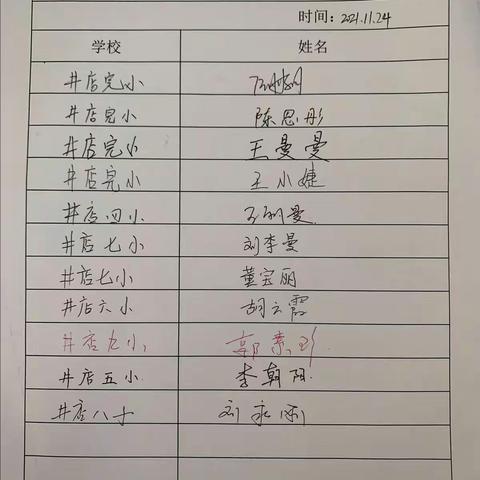 时间：2021.11.24
学校 姓名
井店完小
井店完小 陈思彤
井店完小 王曼曼
井店完小 王小婕
井店四小
井店七小 刘李曼
井店七小 董宝丽
井店六小 胡云霞
井店九小 郭素珍
井店五小 李朝阳
井店八小 刘永刚